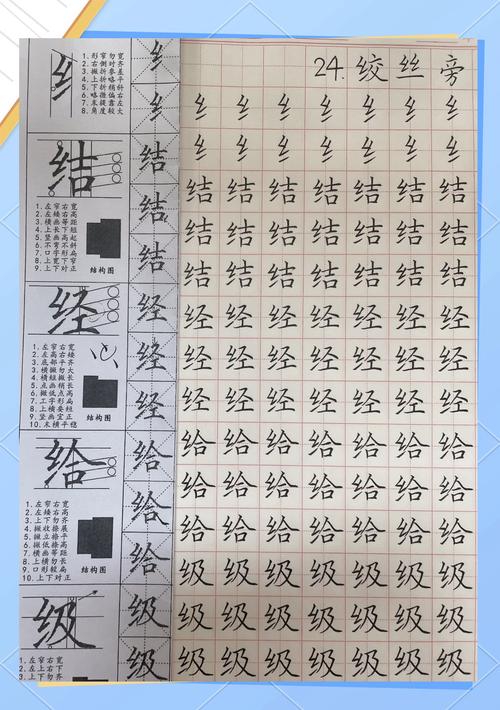 24. 绞丝旁
纟
1、形窄勿宽
2、右侧对齐
3、撇折参差
4、上折略平
5、下折稍斜
6、略微偏右
7、末提靠左
8、角度较大
纟 纟 纟 纟 纟 纟 纟 纟
纟 纟 纟 纟 纟 纟 纟 纟
结
1、左窄右宽
2、左矮右高
3、横画等距
4、上长下短
5、竖画高起
6、不弯不斜
7、口字形扁
8、上宽下窄
9、上下对正
结构图
结 结 结 结 结 结 结 结
结 结 结 结 结 结 结 结
结 结 结 结 结 结 结 结
经
1、左窄右宽
2、左高右矮
3、底部平齐
3、横撇勿大
4、横短撇长
5、点画稍长
6、撇低点高
7、工字形扁
8、上横要短
9、竖画宜正
10、末横平稳
结构图
经 经 经 经 经 经 经 经
经 经 经 经 经 经 经 经
经 经 经 经 经 经 经 经
给
1、左窄右宽
2、左矮右高
3、上下勿齐
4、撇收捺展
5、撇立捺平
6、撇低捺高
7、横画等距
8、上横勿长
9、口形较扁
10、上下对正
结构图
给 给 给 给 给 给 给 给
给 给 给 给 给 给 给 给
给 给 给 给 给 给 给 给
级
1、左窄右宽
3、上下勿齐
级 级 级 级 级 级 级
级 级 级 级 级 级 级 级
级 级 级 级 级 级 级 级